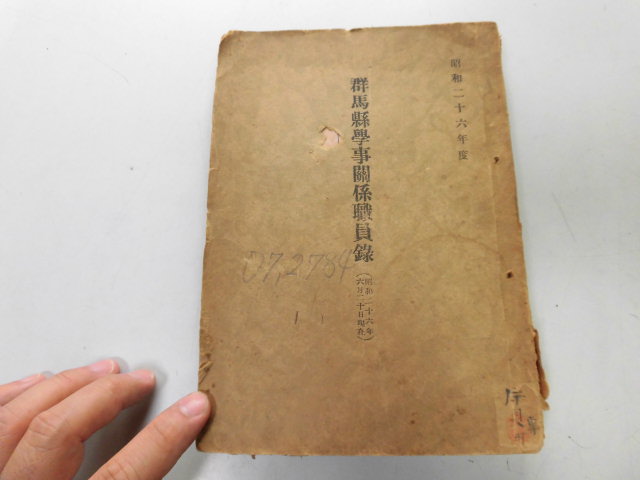 昭和二十六年度
群馬縣學事關係職員錄
(昭和二十六年
六月二十日現在)
07,2784